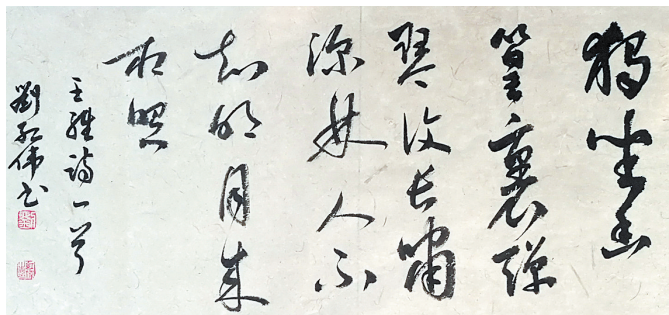 獨坐幽
篁裏彈
琴復長嘯
深林人不
知明月来
相照
王維詩一首
劉
伟书